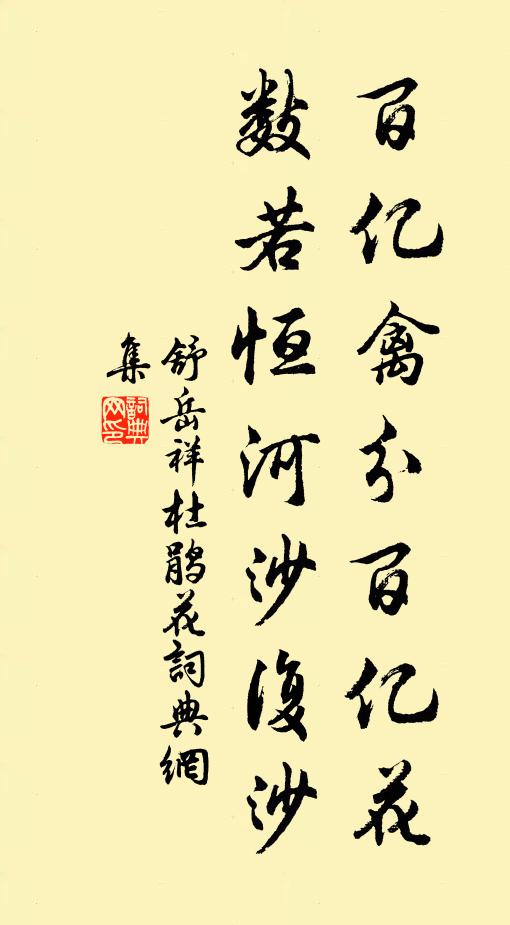 百亿禽分百亿花
数若恒河沙復沙
舒岳祥杜鹃花詞典網
集
詞典
网印